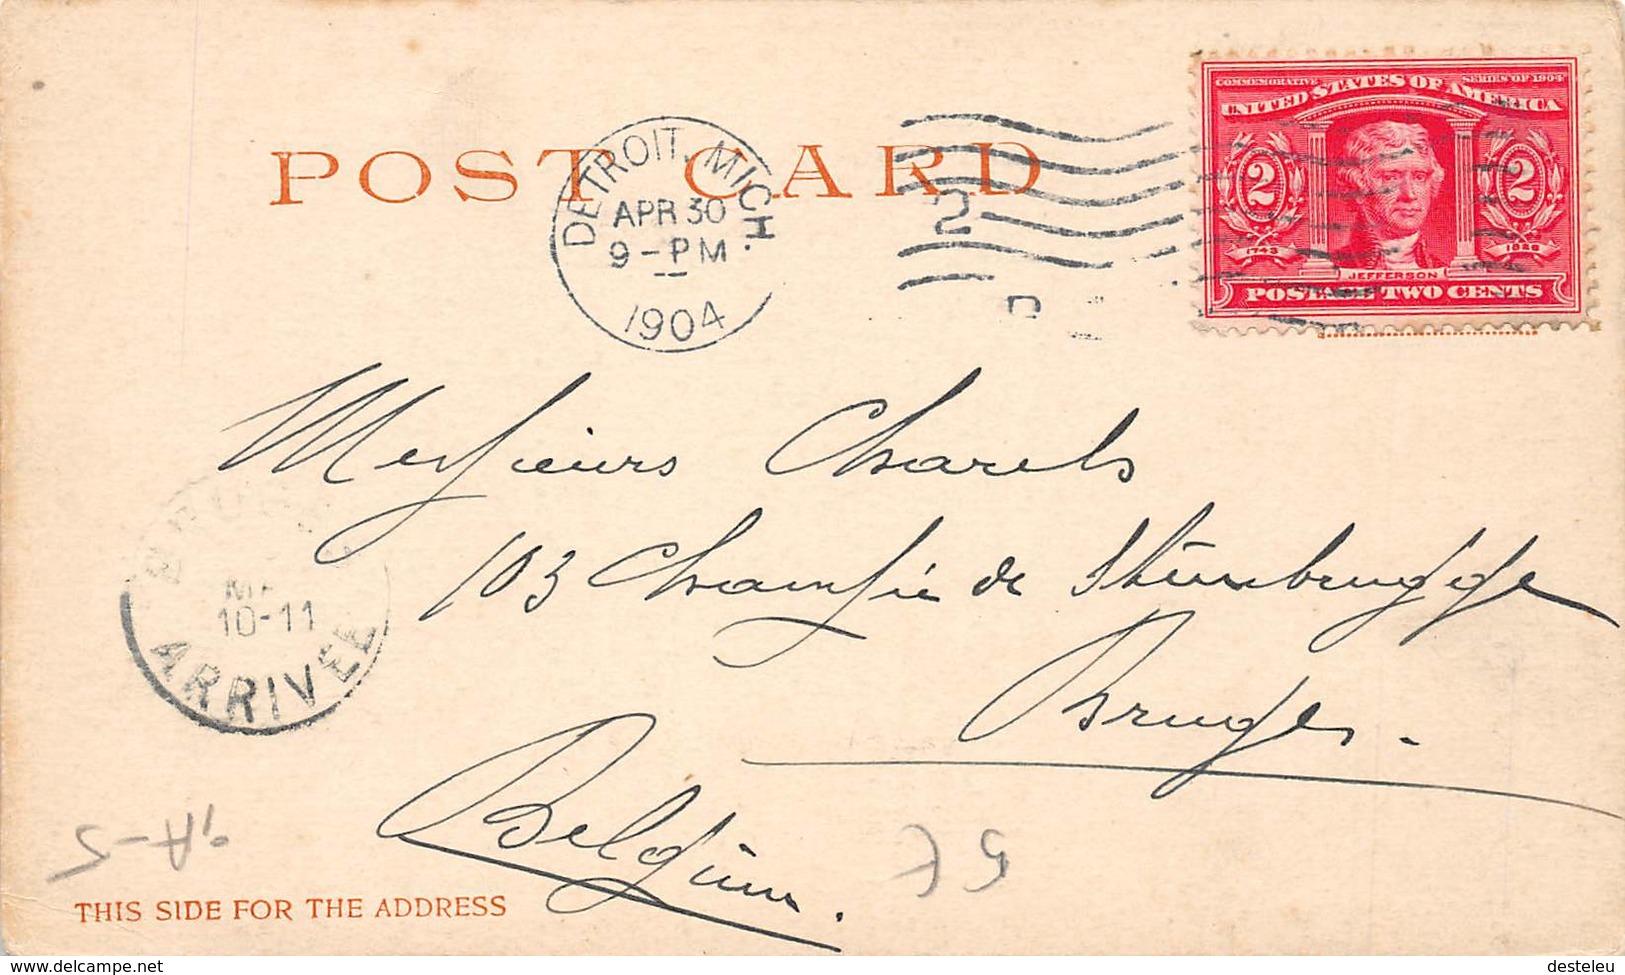 COMMEMORATIVE SERIES OF 1904
UNITED STATES OF AMERICA
2 2
1743 1826
JEFFERSON
POSTAGE TWO CENTS
POST CARD
DETROIT, MICH.
APR 30
9-PM
1904
2
D
Messieurs Charels
103 Chaussée de Steenbrugge
Bruges.
Belgium.
BRUG
MA
10-11
ARRIVEE
THIS SIDE FOR THE ADDRESS
delcampe.net
desteleu